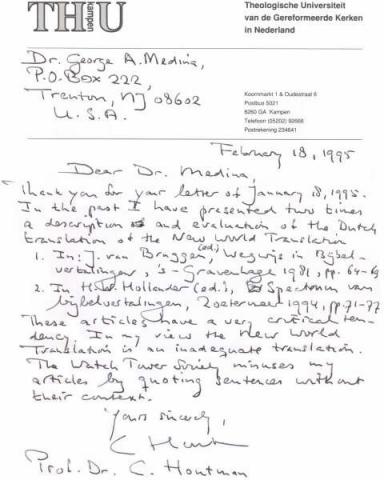 THU
kampen
Theologische Universiteit
van de Gereformeerde Kerken
in Nederland
Dr. George A. Medina,
P.O. Box 222,
Trenton, NJ 08602
U.S.A.
Koornmarkt 1 & Oudestraat 6
Postbus 5021
8260 GA Kampen
Telefoon (05202) 92666
Postrekening 234641
February 18, 1995
Dear Dr. Medina,
Thank you for your letter of January 18, 1995.
In the past I have presented two times
a description and evaluation of the Dutch
translation of the New World Translation
1. In: J. van Bruggen (ed.), Wegwijs in Bijbel-
vertalingen, 's-Gravenhage 1981, pp. 64-69
2. In H.W. Hollander (ed.), Spectrum van
bijbelvertalingen, Zoetermeer 1994, pp. 71-77
These articles have a very critical ten-
dency. In my view the New World
Translation is an inadequate translation.
The Watch Tower Society misuses my
articles by quoting sentences without
their context.
Yours sincerely,
C Hout
Prof. Dr. C. Houtman